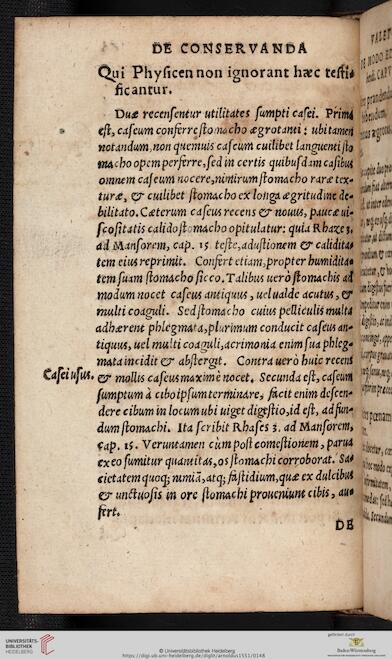 DE CONSERVANDA
Qui Physicen non ignorant hæc testi-
ficantur.
Duæ recensentur utilitates sumpti casei. Prima
est, caseum conferre stomacho ægrotanti: ubi tamen
notandum, non quemuis caseum cuilibet languenti sto
macho opem perferre, sed in certis quibusdam casibus
omnem caseum nocere, nimirum stomacho raræ tex-
turæ, & cuilibet stomacho ex longa ægritudine de-
bilitato. Cæterum caseus recens & nouus, paucæ ui-
scositatis calido stomacho opitulatur: quia Rhaze 3.
ad Mansorem, cap. 15 teste, adustionem & calidita-
tem eius reprimit. Confert etiam, propter humidita-
tem suam stomacho sicco. Talibus uerò stomachis ad
modum nocet caseus antiquus, uel ualde acutus, &
multi coaguli. Sed stomacho cuius pelliculis multa
adhærent phlegmata, plurimum conducit caseus an-
tiquus, uel multi coaguli, acrimonia enim sua phleg-
mata incidit & abstergit. Contra uerò huic recens
Casei usus.
& mollis caseus maximè nocet. Secunda est, caseum
sumptum à cibo ipsum terminare, facit enim descen-
dere cibum in locum ubi uiget digestio, id est, ad fun-
dum stomachi. Ita scribit Rhases 3. ad Mansorem,
cap. 15. Veruntamen cùm post comestionem, parua
ex eo sumitur quantitas, os stomachi corroborat. Sa-
cietatem quoq; nimiā, atq; fastidium, quæ ex dulcibus
& unctuosis in ore stomachi proueniunt cibis, au-
fert.
DE
UNIVERSITÄTS-
BIBLIOTHEK
HEIDELBERG
© Universitätsbibliothek Heidelberg
https://digi.ub.uni-heidelberg.de/diglit/arnoldus1551/0148
gefördert durch
Baden-Württemberg